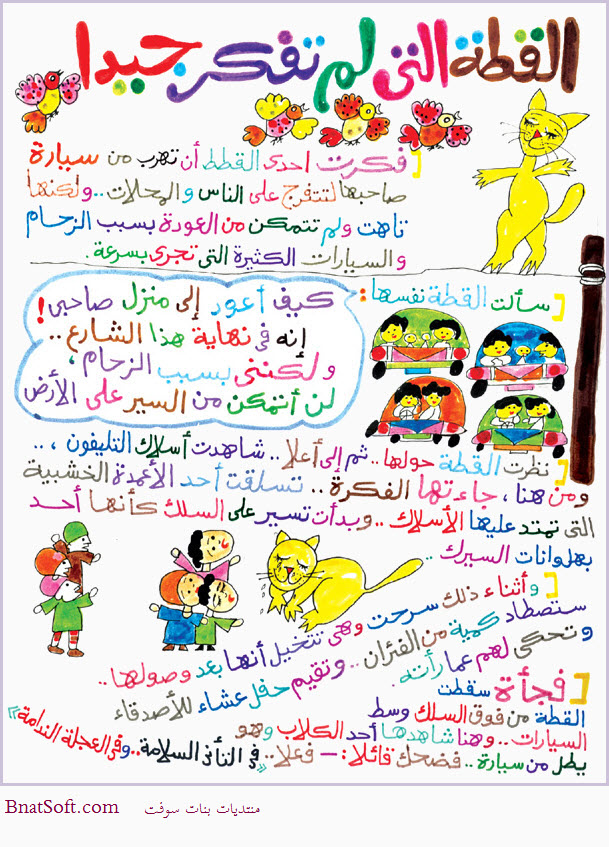 القطة التى لم تفكر جيدا
فكرت احدى القطط أن تهرب من سيارة
صاحبها لتتفرج على الناس والمحلات .. ولكنها
تاهت ولم تتمكن من العودة بسبب الزحام
والسيارات الكثيرة التى تجرى بسرعة .
سألت القطة نفسها :
كيف أعود إلى منزل صاحبى !
إنه فى نهاية هذا الشارع ..
ولكننى بسبب الزحام ،
لن أتمكن من السير على الأرض
نظرت القطة حولها .. ثم إلى أعلا .. شاهدت أسلاك التليفون ، ..
ومن هنا ، جاءتها الفكرة .. تسلقت أحد الأعمدة الخشبية
التى تمتد عليها الأسلاك .. وبدأت تسير على السلك كأنها أحد
بهلوانات السيرك ..
وأثناء ذلك سرحت وهى تتخيل أنها بعد وصولها ..
ستصطاد كمية من الفئران .. وتقيم حفل عشاء للأصدقاء
وتحكى لهم عما رأته .
فجأة سقطت
القطة من فوق السلك وسط
السيارات .. وهنا شاهدها أحد الكلاب وهو
يطل من سيارة .. فضحك قائلا : — فعلا .. « فى التأنى السلامة .. وفى العجلة الندامة »
BnatSoft.com منتديات بنات سوفت